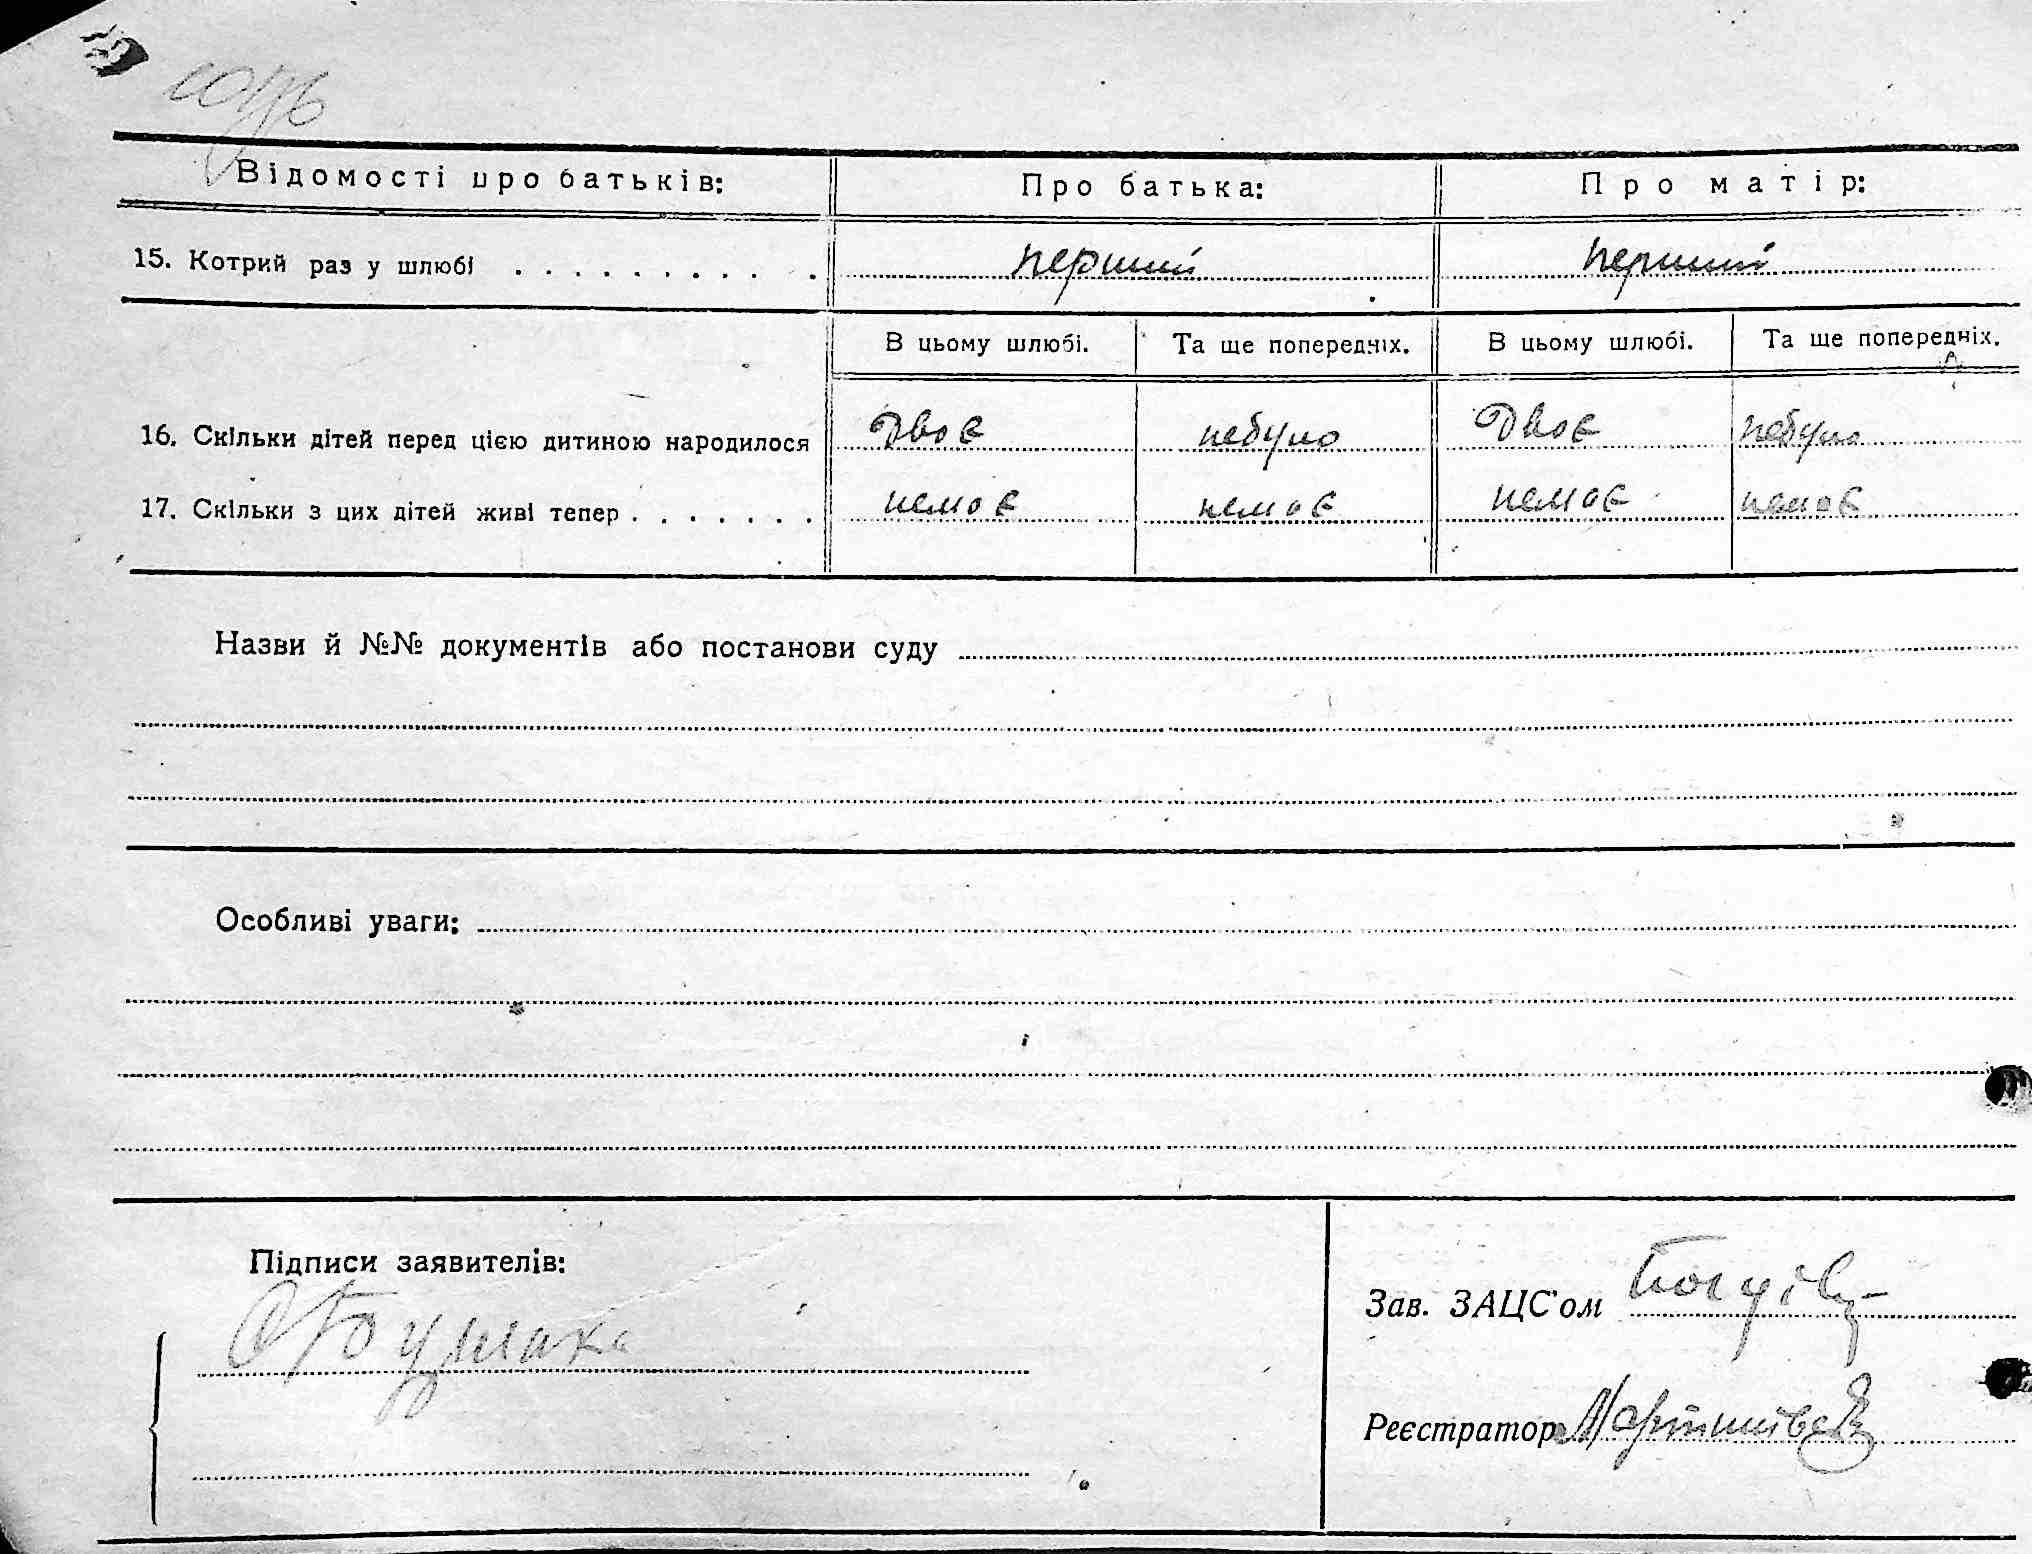 Відомості про батьків: Про батька: Про матір:
15. Котрий раз у шлюбі . . . . . . . . . . . перший перший
В цьому шлюбі. Та ще попередніх. В цьому шлюбі. Та ще попередніх.
16. Скільки дітей перед цією дитиною народилося двоє небуло двоє небуло
17. Скільки з цих дітей живі тепер . . . . . . . немає немає немає немає
Назви й №№ документів або постанови суду
Особливі уваги:
Підписи заявителів:
Зав. ЗАЦС'ом
Реєстратор